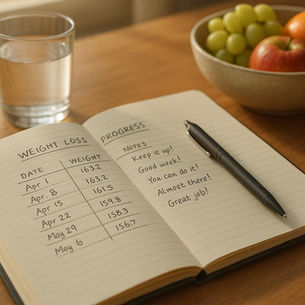 WEIGHT LOSS PROGRESS
DATE WEIGHT
Apr 1 163.2
Apr. 8 163.2
Apr 15 161.5
Apr 22 159.8
May 29 158.3
May 6 156.7
NOTES
Keep it up!
Good week!
You can do it!
Almost there!
Great job!